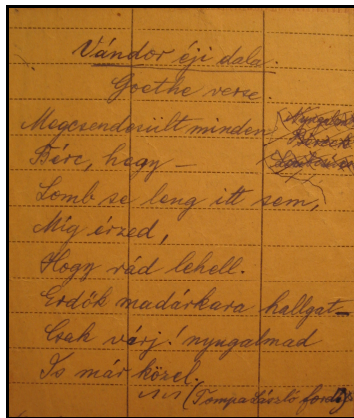 Vándor éji dala.
Goethe verse.
Megcsendesült minden
Bérc, hegy –
Lomb se leng itt sem,
Míg érzed,
Hogy rád lehell.
Erdők madárkara hallgat –
Csak várj! nyugalmad
Is már közel.
(Tompa László ford.)